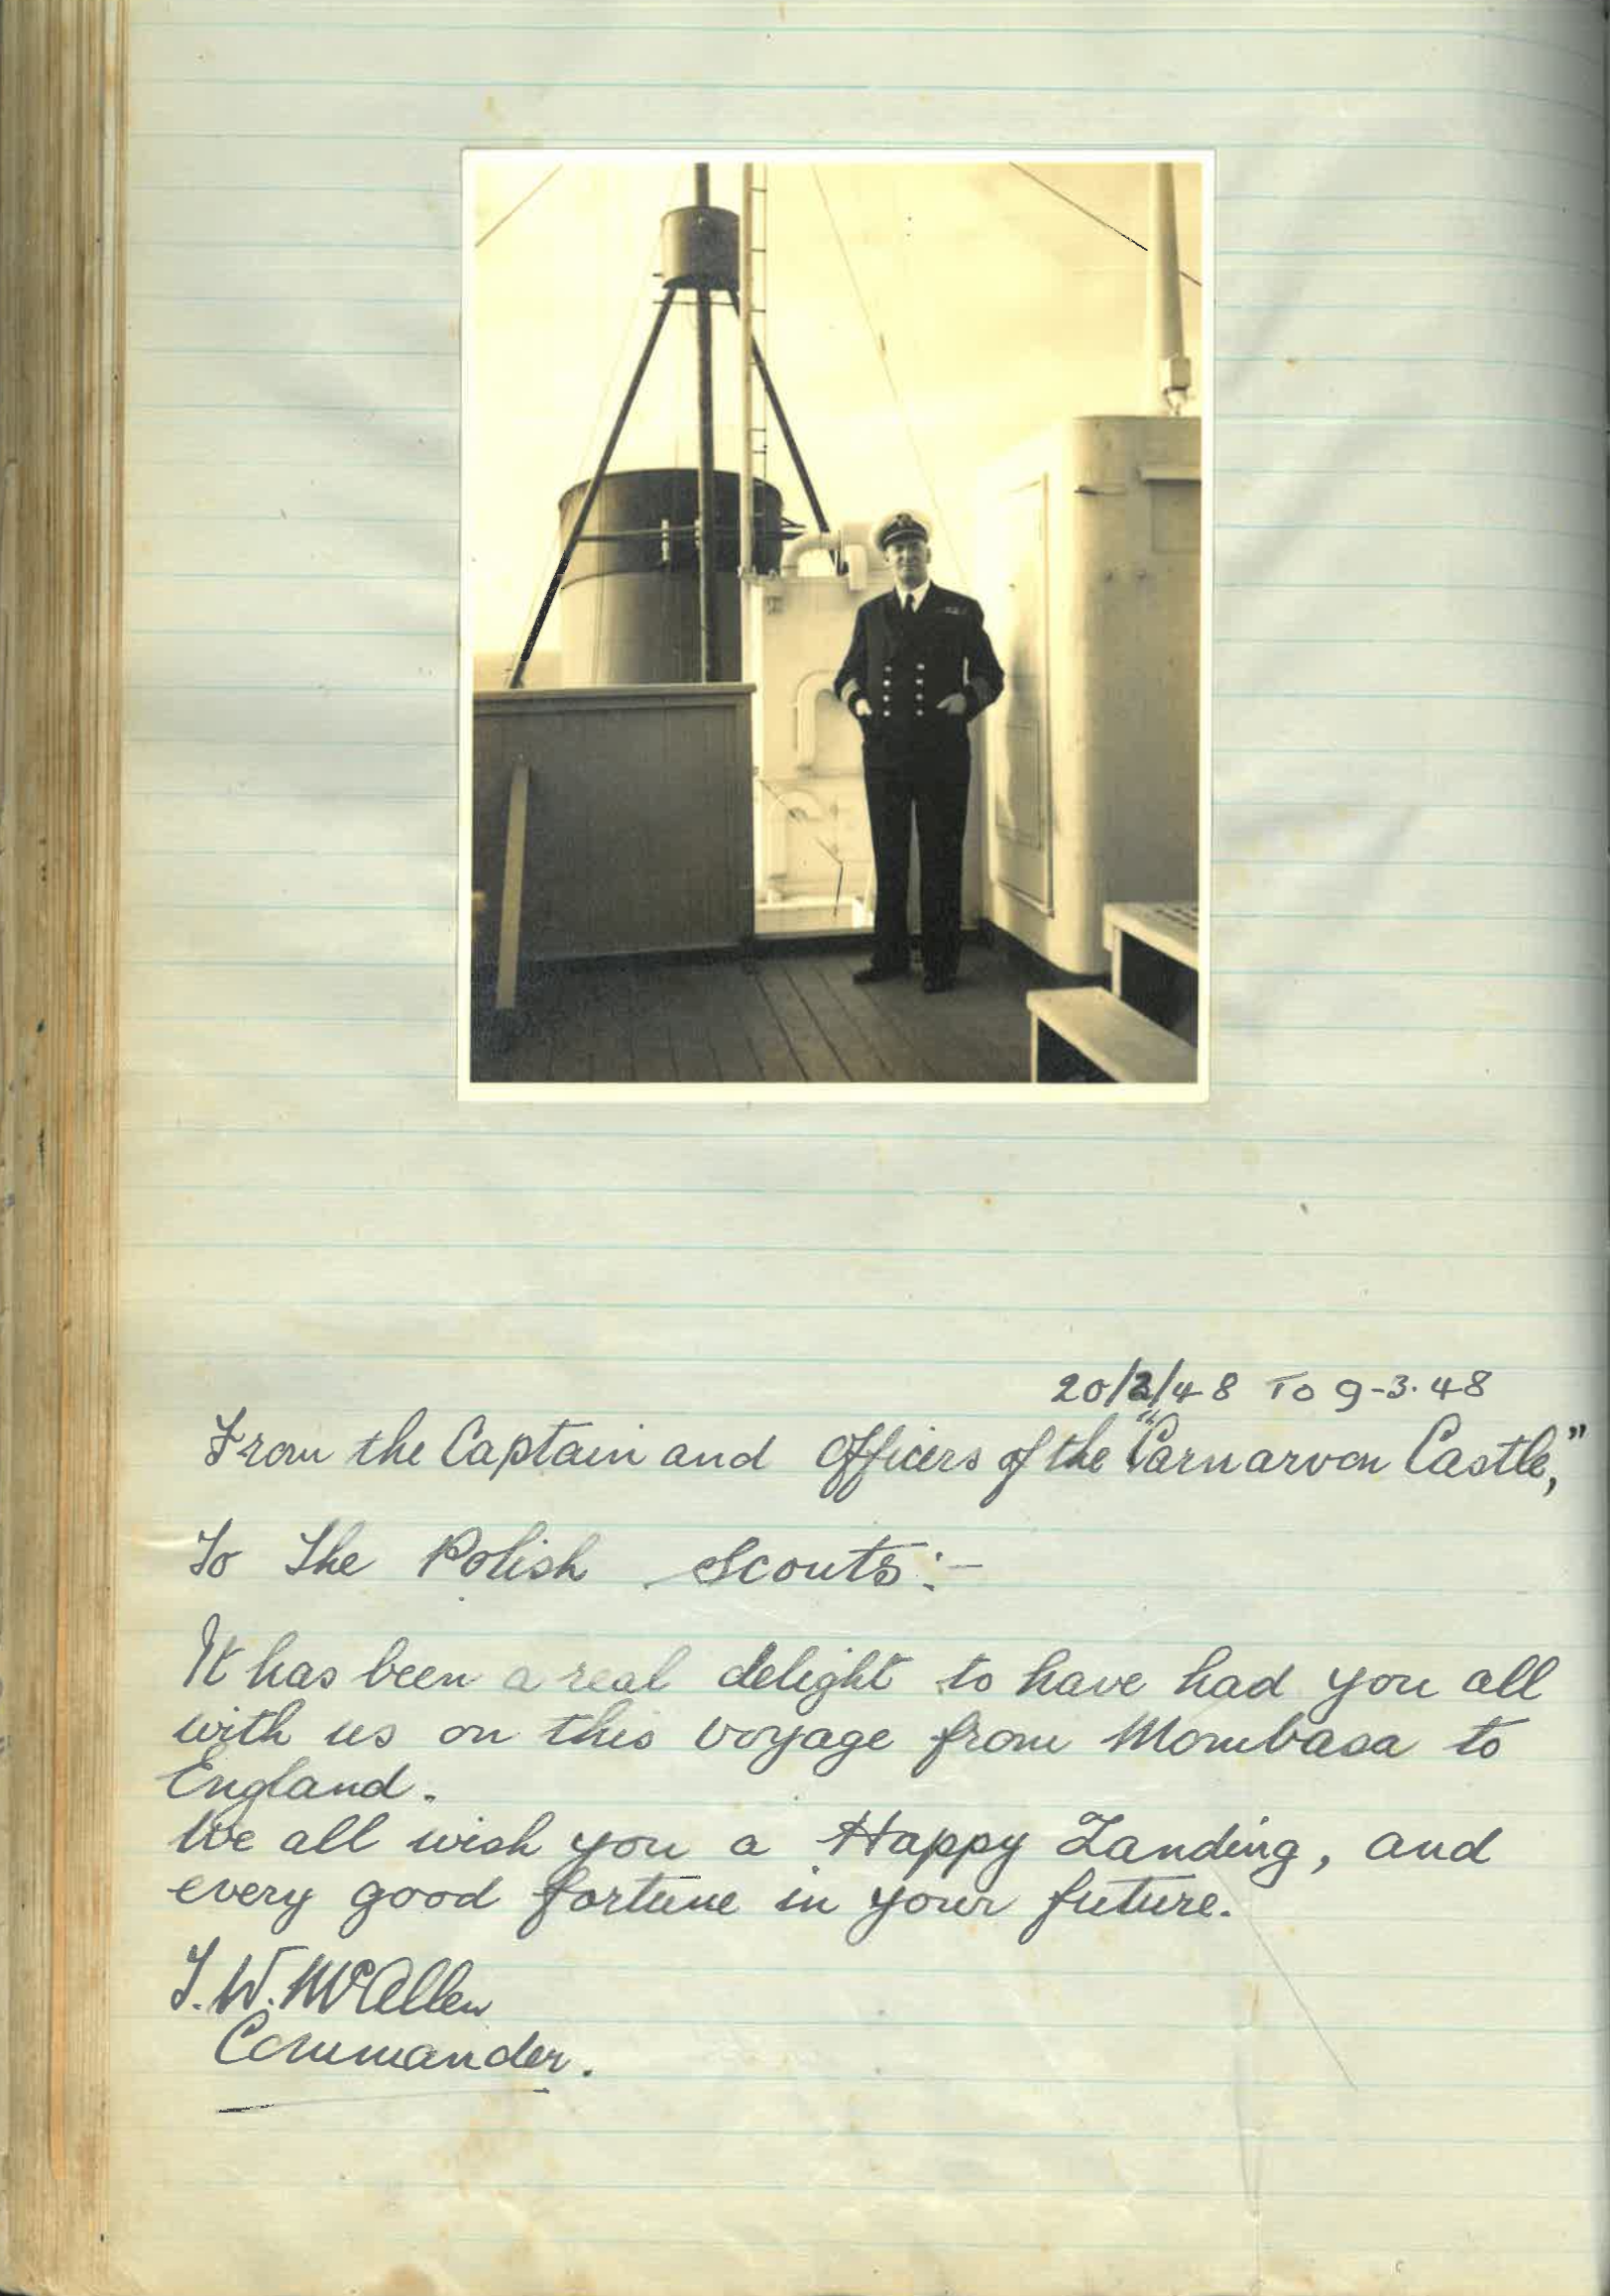 20/2/48 To 9-3-48
From the Captain and Officers of the "Carnarvon Castle,"
To The Polish Scouts:-
It has been a real delight to have had you all
with us on this voyage from Mombasa to
England.
We all wish you a Happy Landing, and
every good fortune in your future.
T. W. McAllen
Commander.